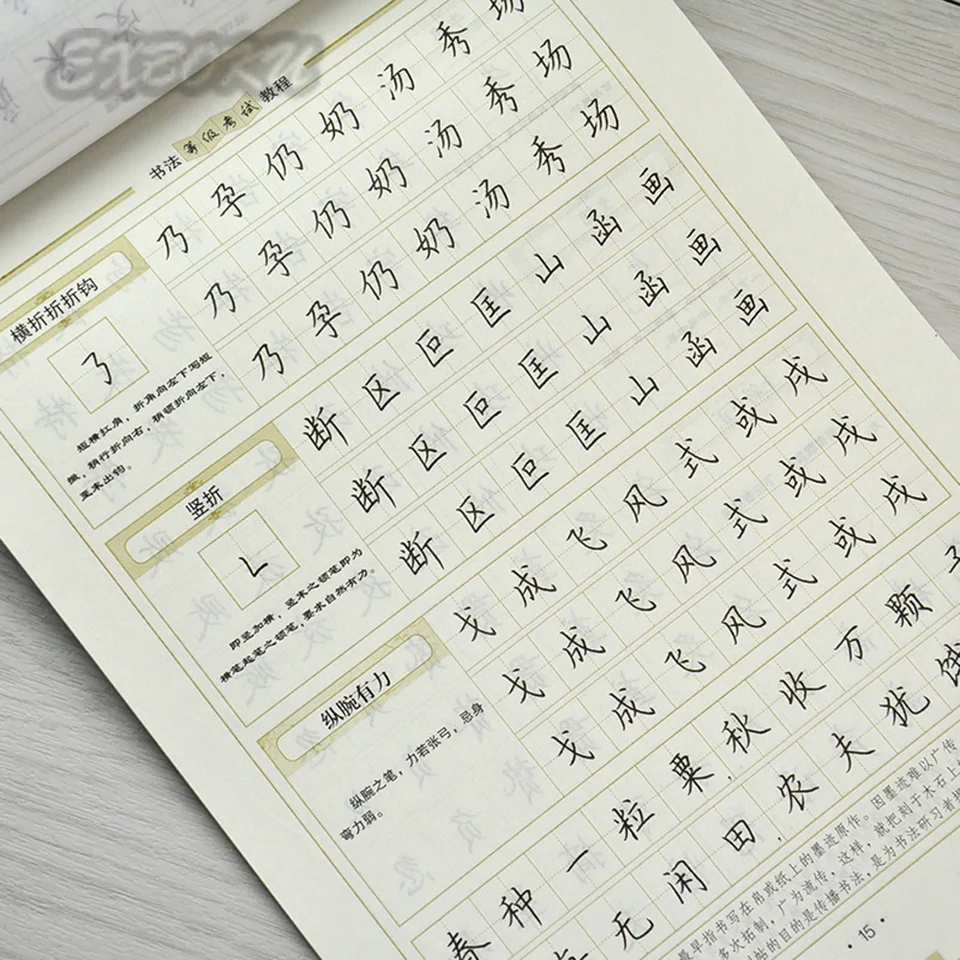 BXBOKU
书法等级考试教程
横折折折钩
短横扛肩,折角向左下写短
撇,稍行折向右,稍顿折向左下,
至末出钩。
乃孕仍奶汤秀场
乃孕仍奶汤秀场
乃孕仍奶汤秀场
竖折
即竖加横,竖末之顿笔即为
横笔起笔之顿笔,要求自然有力。
断区巨匡山函画
断区巨匡山函画
断区巨匡山函画
纵腕有力
纵腕之笔,力若张弓,忌身
弯力弱。
戈成飞风式或戌
戈成飞风式或戌
戈成飞风式或戌
春种一粒粟,秋收万颗子
无闲田,农夫犹饿
最早指书写在帛或纸上的墨迹原作。因墨迹难以广传
多次拓制,广为流传,这样,就把刻于木石上的
帖的目的是传播书法,是为书法研习者提
·15·